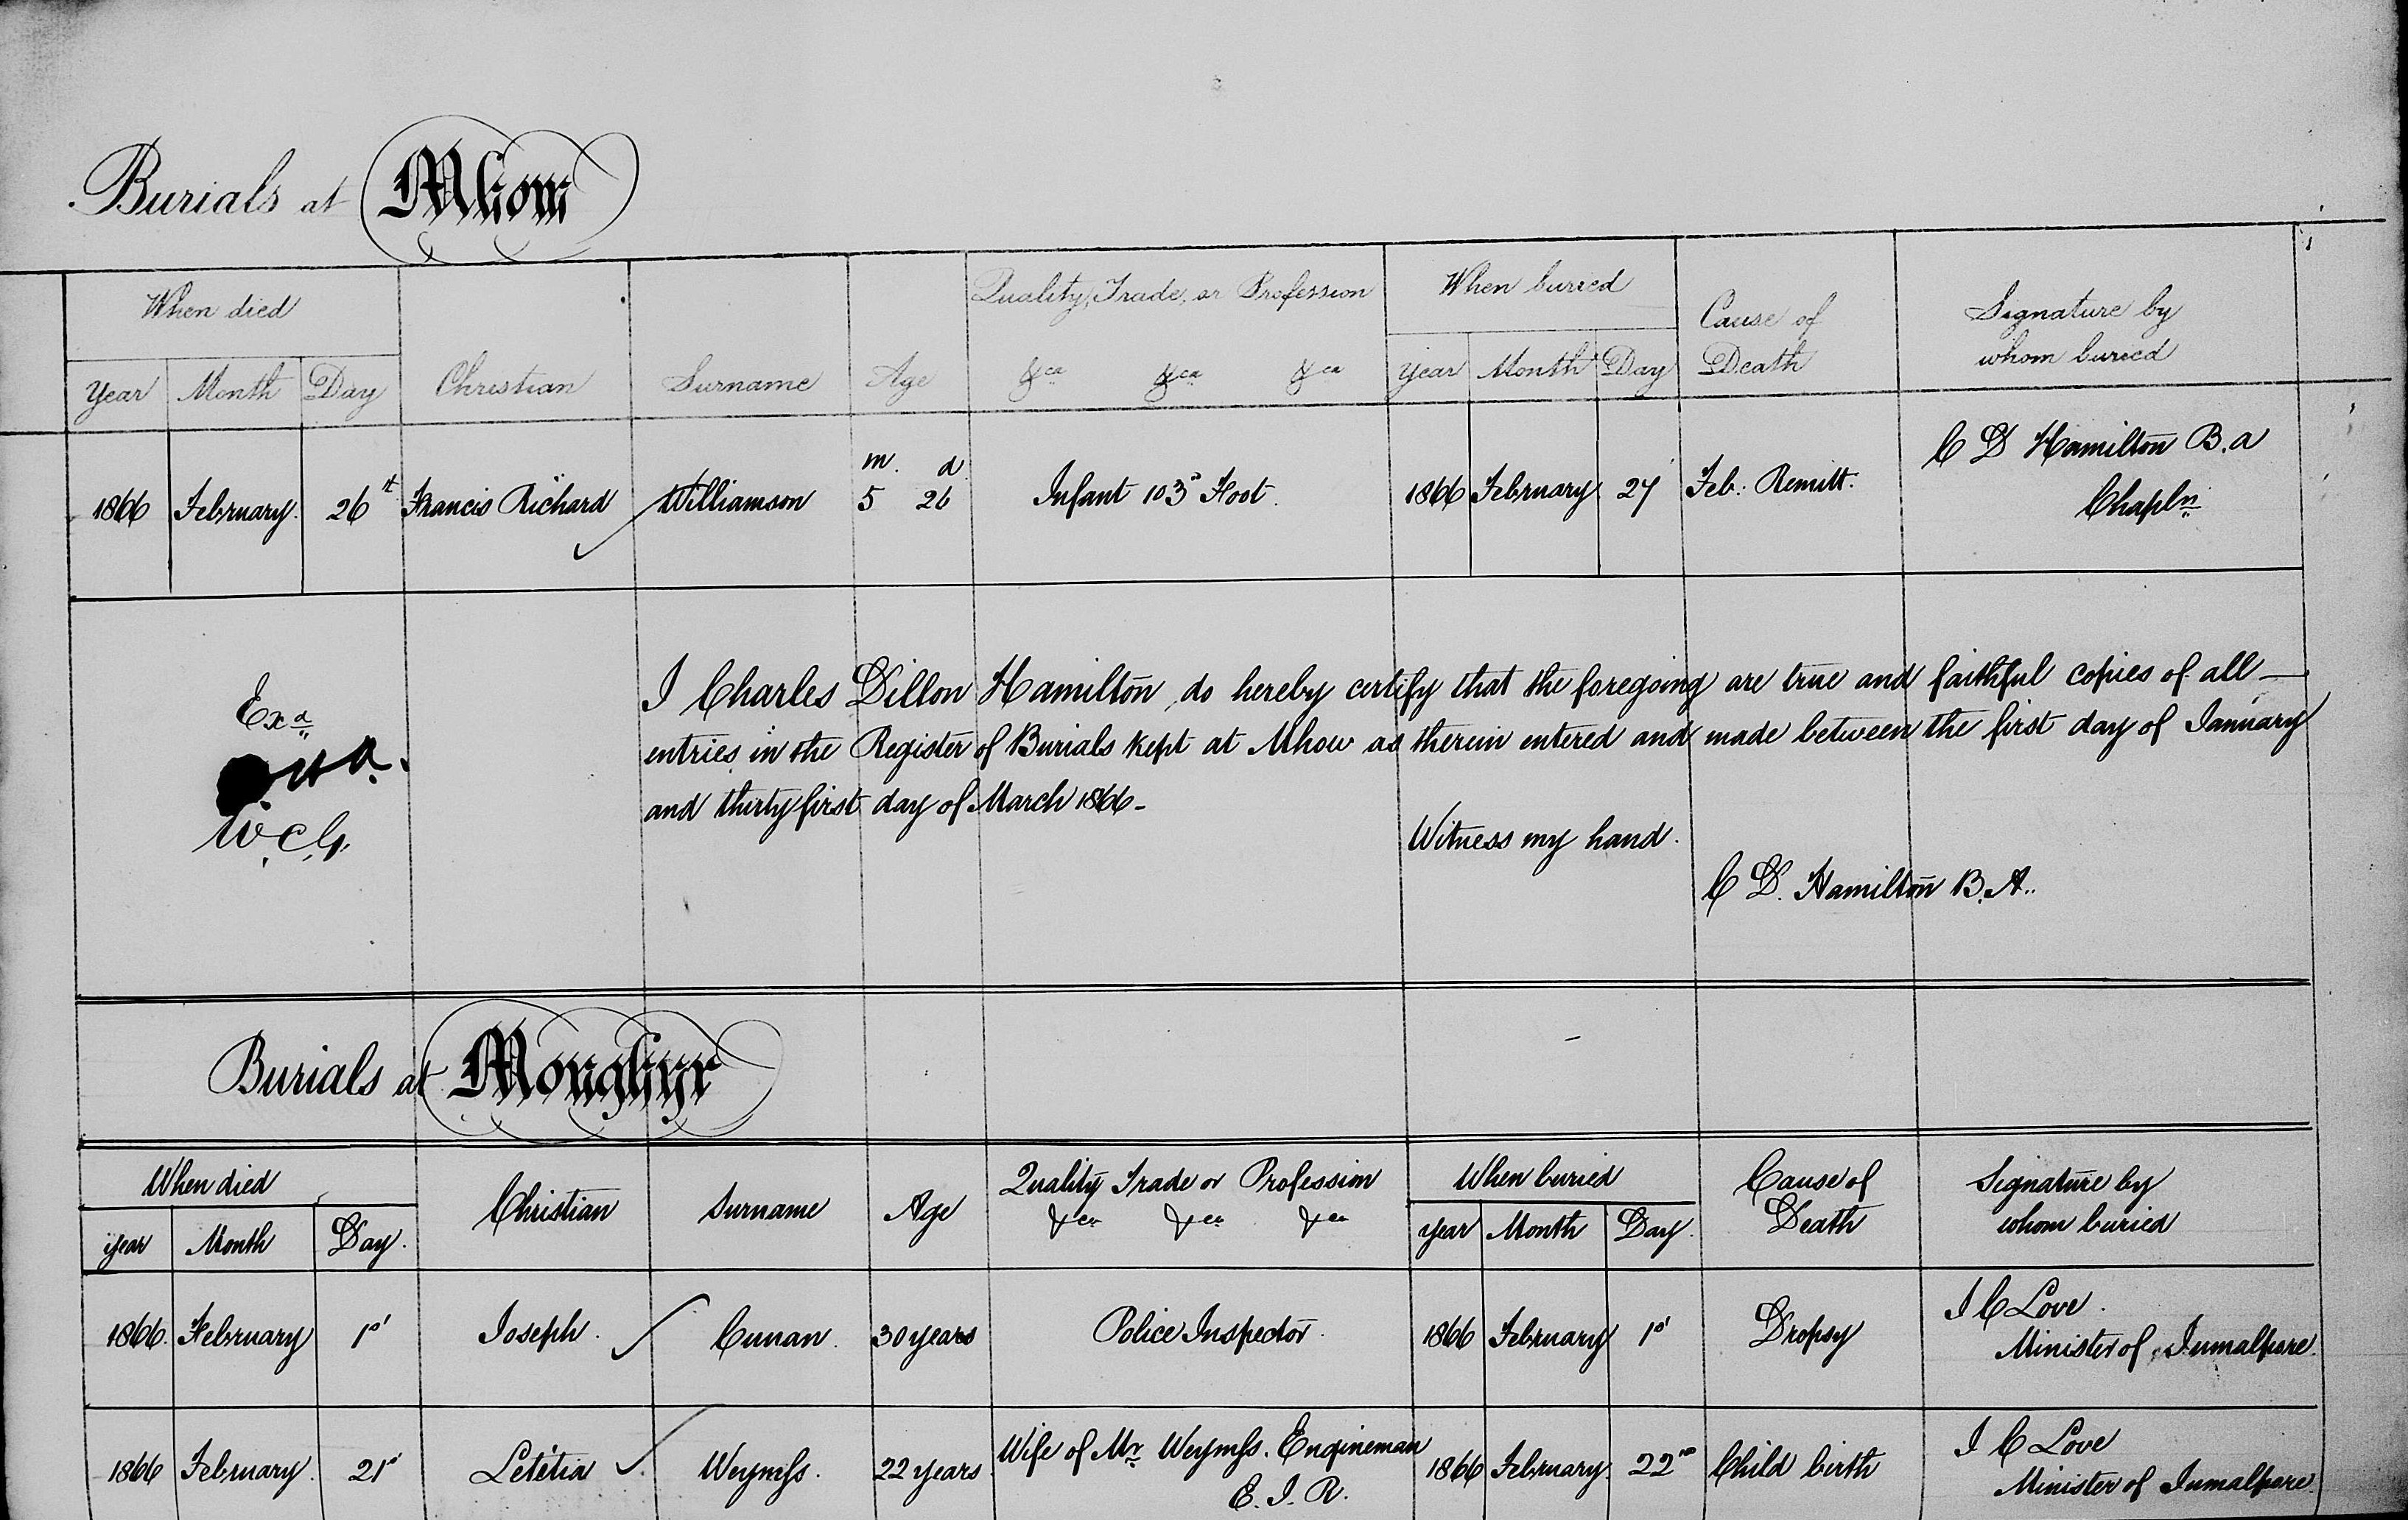 Burials at Mhow
When died
Christian
Surname
Age
Quality, Trade, or Profession
&ca &ca &ca
When buried
Cause of
Death
Signature by
whom buried
Year Month Day
Year Month Day
1866 February. 26th Francis Richard Williamson m. d 5 26 Infant 103d Foot. 1866 February 27 Feb: Remitt. C D Hamilton B.A
Chapln
Exd
W.C.G.
I Charles Dillon Hamilton, do hereby certify that the foregoing are true and faithful copies of all
entries in the Register of Burials kept at Mhow as therein entered and made between the first day of January
and thirty first day of March 1866-
Witness my hand.
C D. Hamilton B.A.
Burials at Monghyr
When died
Christian
Surname
Age
Quality Trade or Profession
&ca &ca &ca
When buried
Cause of
Death
Signature by
whom buried
Year Month Day.
Year Month Day.
1866. February 1st Joseph. Cunan. 30 years Police Inspector. 1866 February 1st Dropsy J C Love.
Minister of Jumalpore.
1866 February. 21st Letetia Weymss. 22 years Wife of Mr Weymss. Engineman
E. I. R. 1866 February. 22nd Child birth J C Love
Minister of Jumalpore.